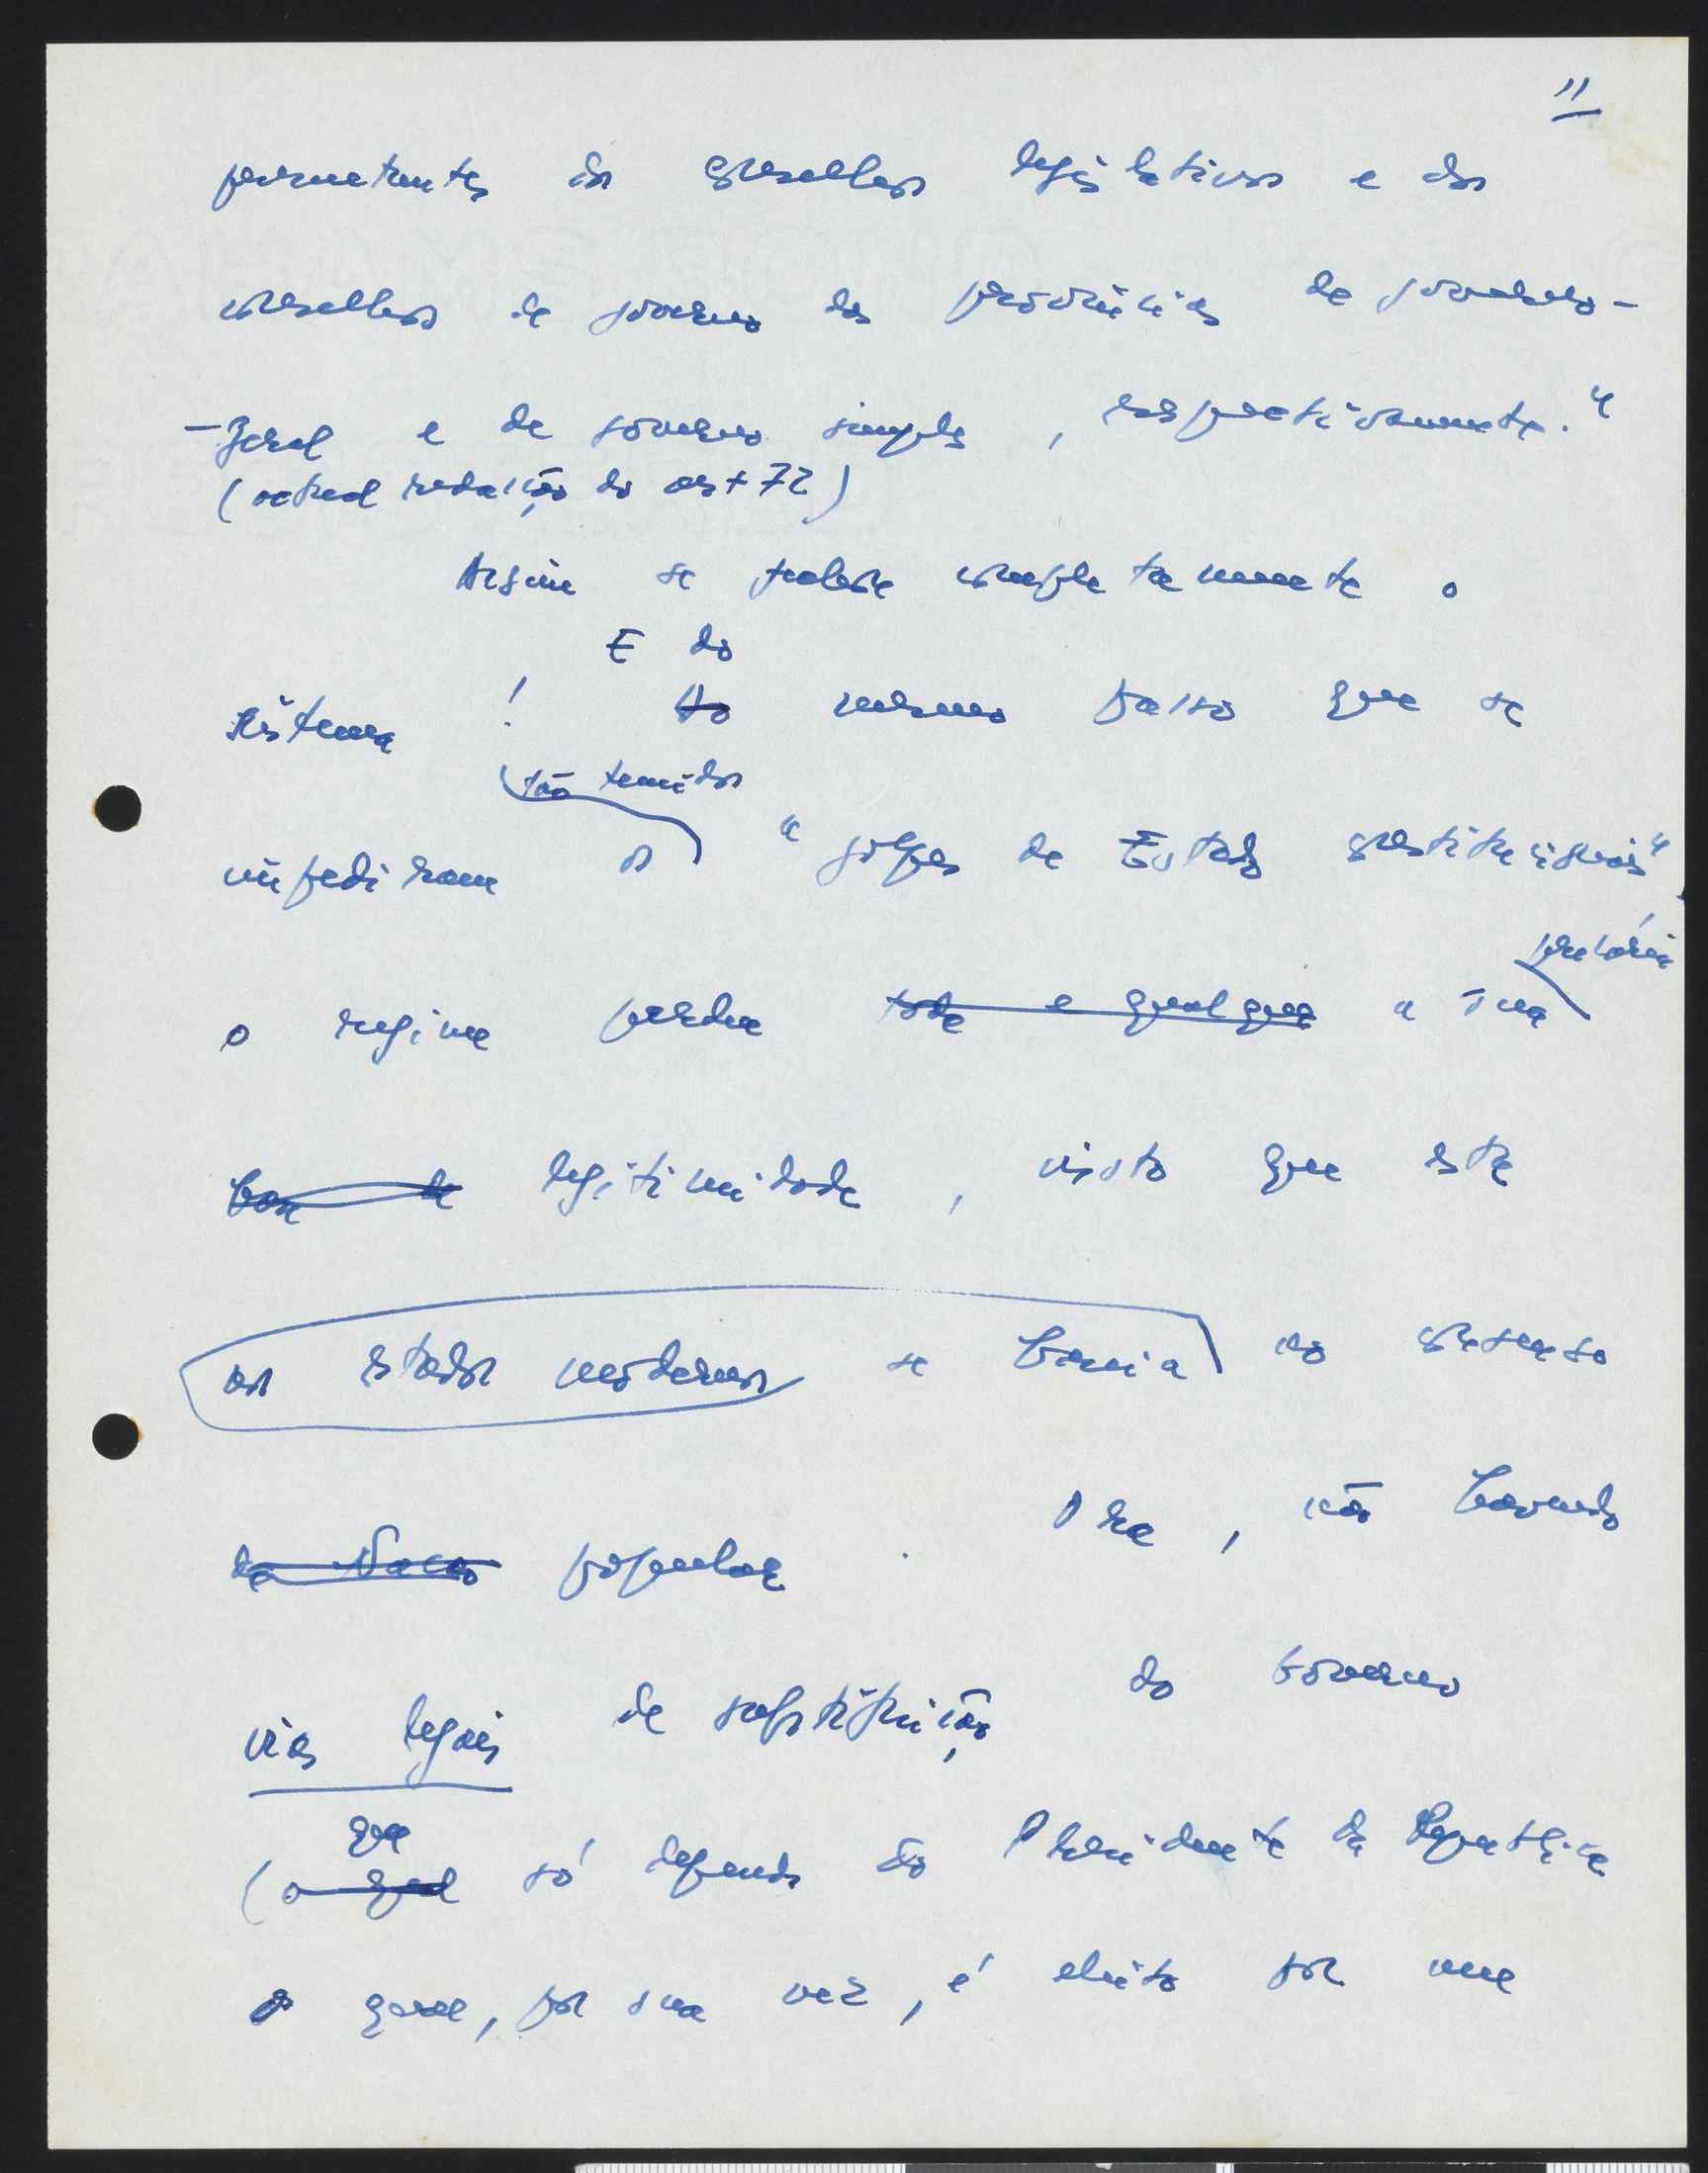 11
permanentes dos conselhos legislativos e dos
conselhos de governo das províncias de governo-
-geral e de governo simples, respectivamente."
(actual redacção do art 72)
Assim se fechou completamente o
E do
sistema! Ao mesmo passo que se
tão temidos
impediram os "golpes de Estado constitucionais",
precária
o regime perdeu toda e qualquer a sua
base de legitimidade, visto que esta
nos estados modernos se baseia no consenso
da Nação popular. Ora, não havendo
vias legais de substituição do Governo
que
(o qual só depende do Presidente da República
o qual, por sua vez, é eleito por um